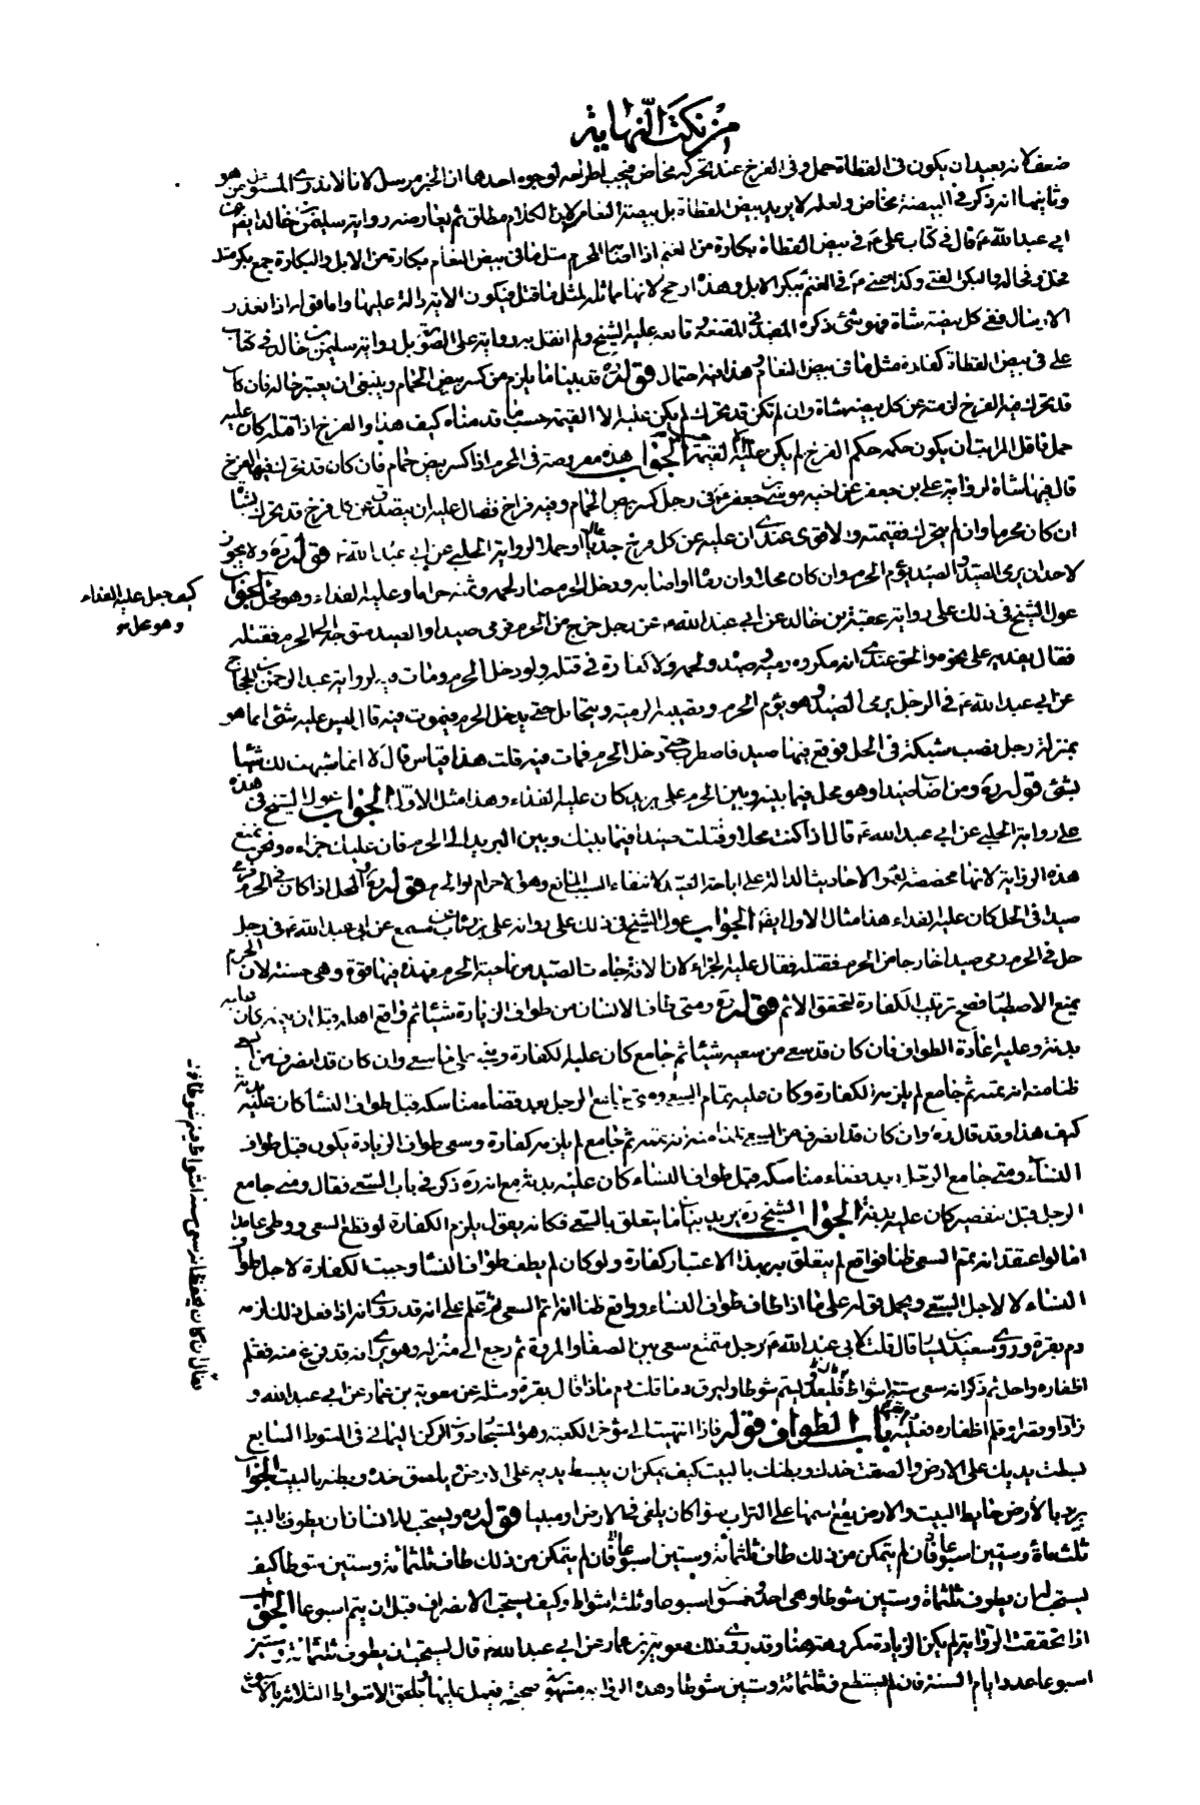 من نكت النهاية
ضعف لانه بعيد ان يكون في القطاة حمل وفي الفرخ عند تحركه مخاض فيجب اطراحه لوجوه احدها ان الخبر مرسل لانا لا ندري المسئول من هو
وثانيها انه ذكر في البيضة مخاض ولعله لا يريد بيض القطاة بل بيضة النعام لان الكلام مطلق ثم يعارضه رواية سليمن بن خالد ايضا عن
ابي عبد الله ع قال في كتاب علي ع في بيض القطاة بكارة من الغنم اذا اصابه المحرم مثل ما في بيض النعام بكارة من الابل والبكارة جمع بكر مثل
فحل وفحالة والبكر الفتي وكذا في الغنم بكر الابل وهذا ارجح لانها مماثلة لمثل ما قتل فيكون الاية دالة عليها واما قوله اذا تعذر
الارسال ففي كل بيضة شاة فهو شئ ذكره المفيد في المقنعة وتابعه عليه الشيخ ولم انقل به رواية على الصورة بل رواية سليمن بن خالد في كتاب
علي في بيض القطاة كفارة مثل ما في بيض النعام وهذا فيه احتمال قوله ره قد بينا ما يلزم من كسر بيض الحمام وينبغي ان يعتبر حاله فان كان
قد تحرك فيه الفرخ لزمته عن كل بيضة شاة وان لم تكن قد تحرك لم يكن عليه الا القيمة حسب ما قدمناه كيف هذا والفرخ اذا قتله كان عليه
حمل فاقل المراتب ان يكون حكمه حكم الفرخ لم يكن عليه القيمة الجواب هذه مفروضة في المحرم اذا كسر بيض حمام فان كان قد تحرك فيها الفرخ
قال فيها شاة لرواية علي بن جعفر عن اخيه موسى بن جعفر ع في رجل كسر بيض الحمام وفيه فراخ فقال عليه ان يتصدق عن كل فرخ قد تحرك بشاة
ان كان محرما وان لم يتحرك فقيمته والاقوى عندي ان عليه عن كل فرخ جديا او حملا لرواية الحلبي عن ابي عبد الله ع قوله ره ولا يجوز
لاحد ان يرمي الصيد والصيد يؤم الحرم وان كان محلا وان رماه او اصابه ودخل الحرم صار لحمه وثمنه حراما وعليه الفداء وهو محل الجواب
عول الشيخ في ذلك على رواية عقبة بن خالد عن ابي عبد الله ع عن رجل خرج من الحرم فرمى صيدا والصيد متوجه الى الحرم فقتله
فقال يفديه على نحوه والحق عندي انه مكروه رميه وصيده ولحمه ولا كفارة في قتله ولو دخل الحرم ومات فيه لرواية عبد الرحمن بن الحجاج
عن ابي عبد الله ع في الرجل يرمي الصيد وهو يؤم الحرم ويصيبه الرمية ويتحامل حتى يدخل الحرم فيموت فيه قال ليس عليه شئ انما هو
بمنزلة رجل نصب شبكة في الحل فوقع فيها صيد فاضطرب حتى دخل الحرم فمات فيه قلت هذا قياس قال لا انما شبهت لك شيئا
بشئ قوله ره ومن اصاب صيدا وهو محل فيما بينه وبين الحرم على بريد كان عليه الفداء وهذا مثل الاول الجواب عول الشيخ في هذه
على رواية الحلبي عن ابي عبد الله ع قال اذا كنت محلا وقتلت صيدا فيما بينك وبين البريد الى الحرم فان عليك جزاءه ونحن نمنع
هذه الرواية لانها مخصصة لعموم الاحاديث الدالة على اباحة الصيد لانتفاء السبب المانع وهو الاحرام او الحرم قوله ره المحل اذا كان في الحرم فرمى
صيدا في الحل كان عليه الفداء هذا مثال الاول ايضا الجواب عول الشيخ في ذلك على رواية علي بن رئاب عن مسمع عن ابي عبد الله ع في رجل
حل في الحرم رمى صيدا خارجا من الحرم فقتله فقال عليه الجزاء لان الافة جاءت الصيد من ناحية الحرم فهذه فيها قوة وهي حسنة لان الحرم
يمنع الاصطياد فصح ترتب الكفارة لتحقق الاثم قوله ره ومتى طاف الانسان من طواف الزيارة شيئا ثم واقع اهله قبل ان يتمه كان عليه
بدنة وعليه اعادة الطواف فان كان قد سعى من سعيه شيئا ثم جامع كان عليه الكفارة ويبني على ما سعى وان كان قد انصرف من السعي
ظنا منه انه تممه ثم جامع لم يلزمه الكفارة وكان عليه تمام السعي ومتى جامع الرجل بعد قضاء مناسكه قبل طواف النساء كان عليه بدنة
كيف هذا وقد قال ره وان كان قد انصرف من السعي ظنا منه انه تممه ثم جامع لم يلزمه كفارة وسعى طواف الزيارة يكون قبل طواف
النساء ومتى جامع الرجل بعد قضاء مناسكه قبل طواف النساء كان عليه بدنة مع انه ره ذكر في باب السعي فقال ومتى جامع
الرجل قبل تقصيره كان عليه بدنة الجواب الشيخ ره يريد بها ما يتعلق بالسعي فكانه يقول يلزم الكفارة لو قطع السعي ووطى عامدا
اما لو اعتقد انه تمم السعي ظنا فواقع لم يتعلق به بهذا الاعتبار كفارة ولو كان لم يطف طواف النساء وجبت الكفارة لاجل طواف
النساء لا لاجل السعي ويحمل قوله على ما اذا طاف طواف النساء وواقع ظنا انه اتم السعي ثم علم على انه قد روى انه اذا فعل ذلك لزمه
دم بقرة وروى سعيد بن يسار قال قلت لابي عبد الله ع رجل متمتع سعى بين الصفا والمروة ثم رجع الى منزله وهو يرى انه قد فرغ منه فقلم
اظفاره واحل ثم ذكر انه سعى ستة اشواط فليعد وليتم شوطا وليهرق دما قلت دم ماذا قال بقرة ومثله عن معوية بن عمار عن ابي عبد الله و
زاد او قصر او قلم اظفاره فعليه باب الطواف قوله فاذا انتهيت الى مؤخر الكعبة وهو المستجار دون الركن اليماني في الشوط السابع
بسطت يديك على الارض والصقت خدك وبطنك بالبيت كيف يمكن ان يبسط يديه على الارض ويلصق خده وبطنه بالبيت الجواب
يريد بالارض حايط البيت والارض يقع اسمها على التراب سواء كان يلفى في الارض او مبنيا قوله ره ويستحب للانسان ان يطوف بالبيت
ثلثماة وستين اسبوعا فان لم يتمكن من ذلك طاف ثلثمائة وستين شوطا كيف
يستحب له ان يطوف ثلثماة وستين شوطا وهي احد وخمسون اسبوعا وثلثة اشواط وكيف يستحب الانصراف قبل ان يتم اسبوعا الجواب
اذا تحققت الرواية لم يكن الزيادة مكروهة هنا وقد روى ذلك معوية بن عمار عن ابي عبد الله ع قال يستحب ان يطوف ثلثمائة وستين
اسبوعا عدد ايام السنة فان لم يستطع فثلثمائة وستين شوطا وهذه الرواية مشهورة صحيحة فيعمل عليها ويلحق الاشواط الثلاثة بالاسبوع
كيف جعل عليه الفداء
وهو محل هو
فقال ان كان يحفظ انه سعى ستة اشواط فليتم شوطا